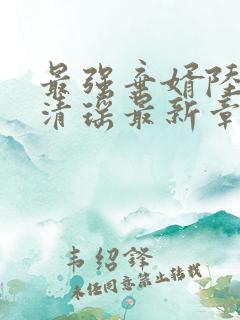 最强弃婿陆
清瑶最新章
韦绍铎
未经同意禁止转载